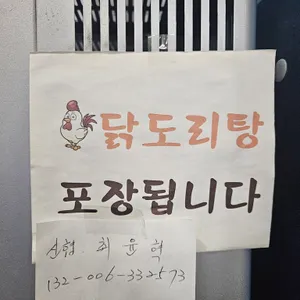 닭도리탕
포장됩니다
신협. 최윤혁
132-006-332573